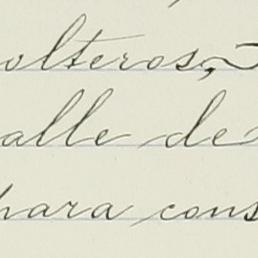 olteros,
alle de
para cons